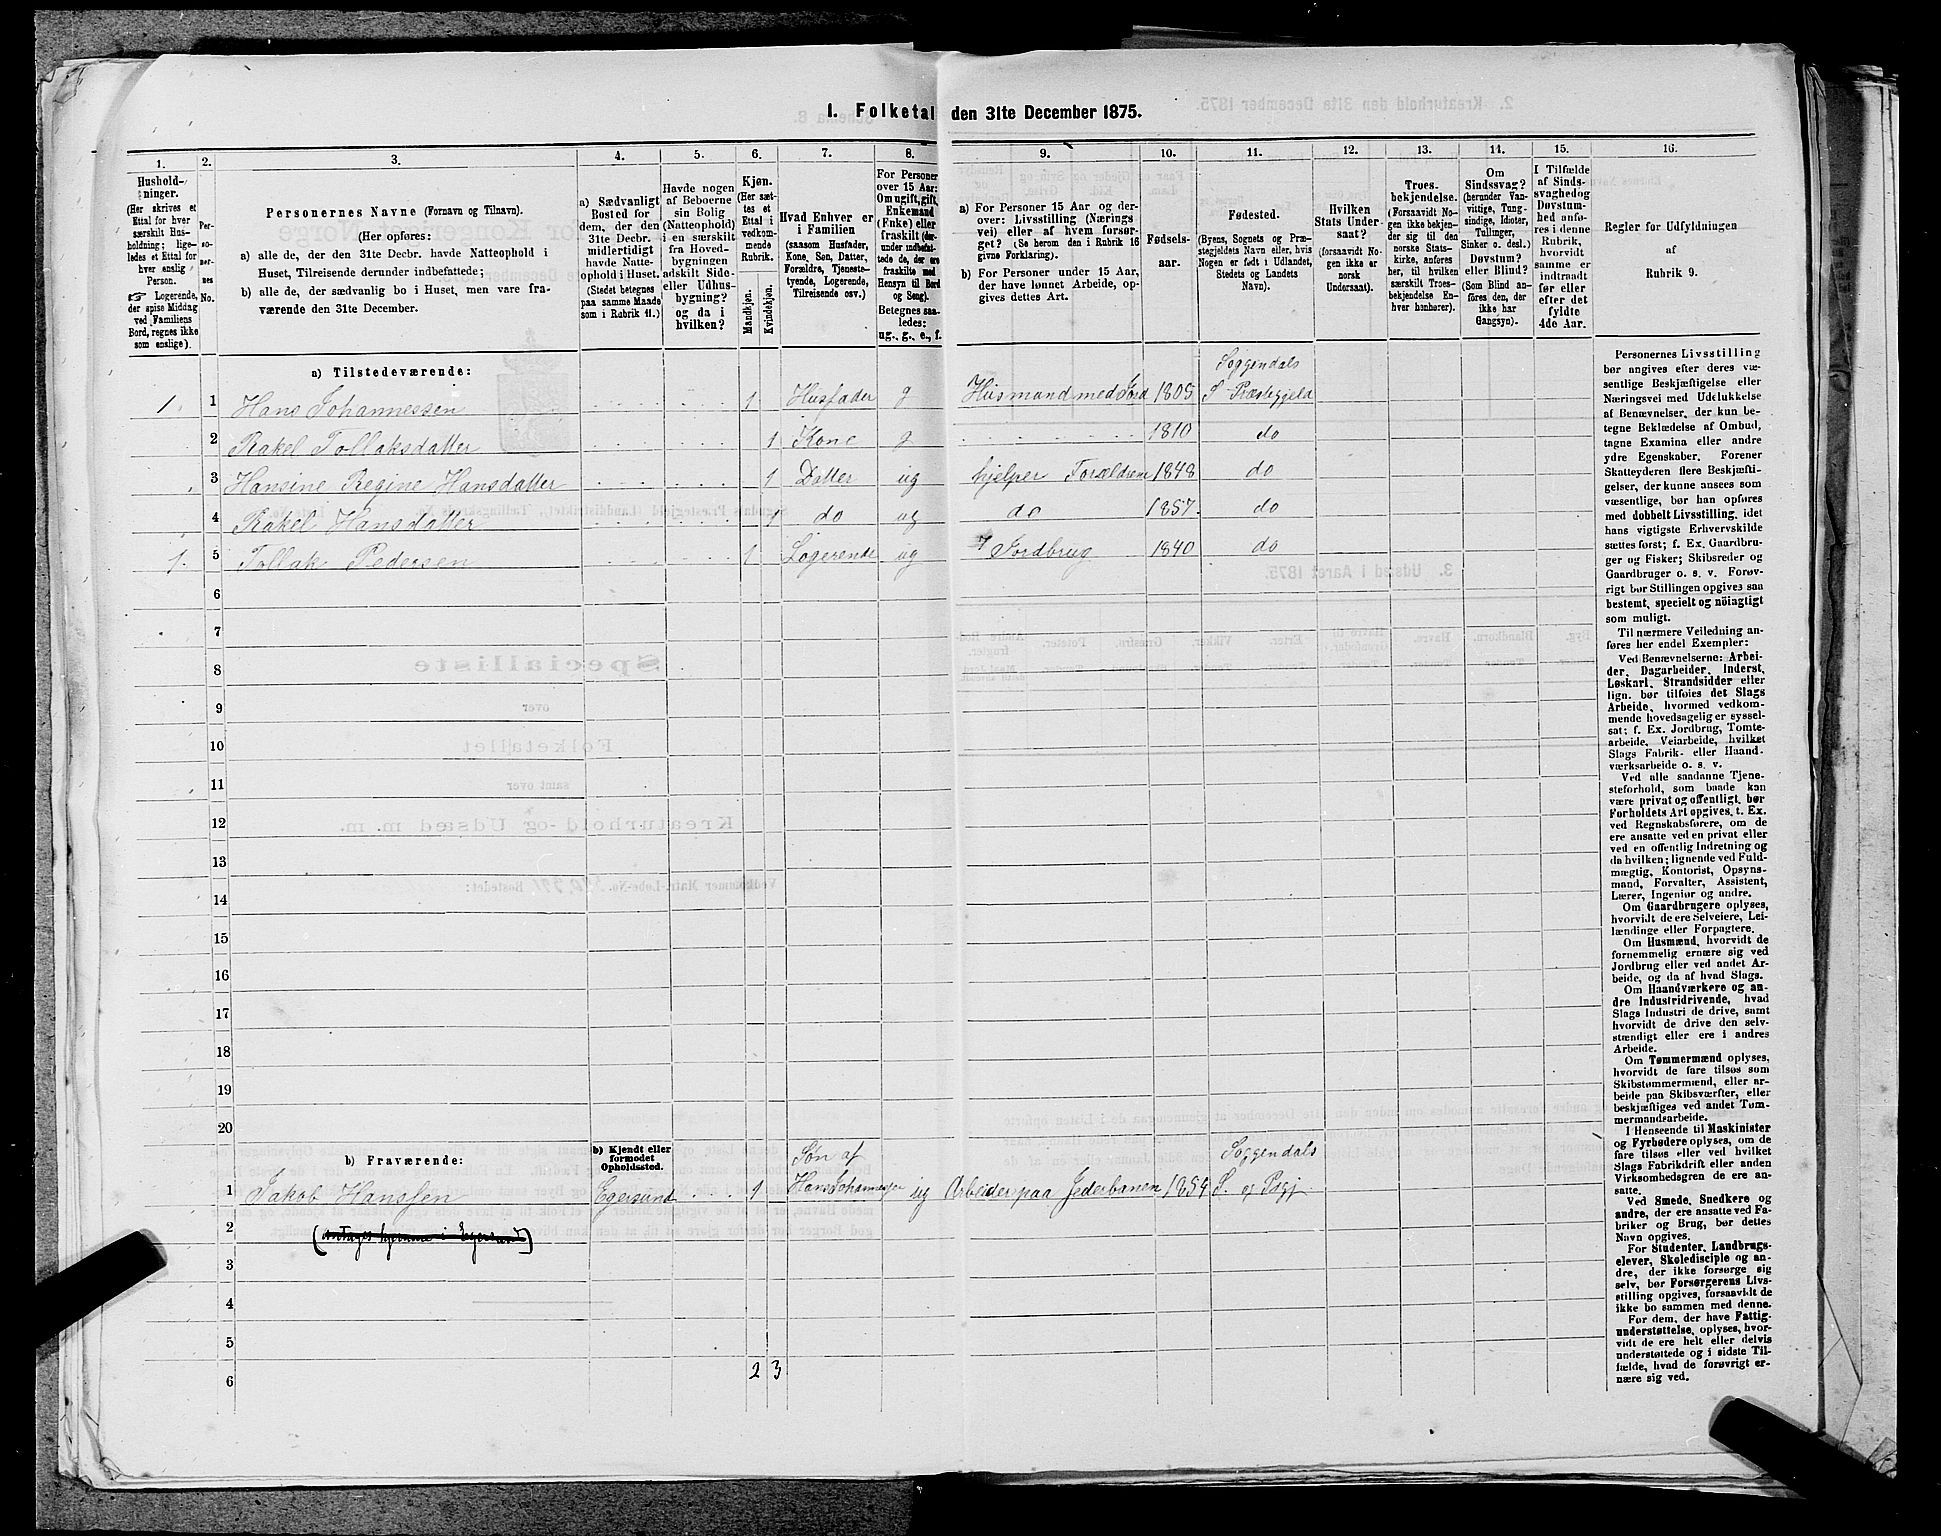 1. Folketal den 31te December 1875.
1.
2.
3.
4.
5.
6.
7.
8.
9.
10.
11.
12.
13.
14.
15.
16.
Hushold-
ninger.
(Her skrives et
Ettal for hver
særskilt Hus-
holdning; lige-
ledes et Ettal for
hver enslig
Person.
☞ Logerende,
der spise Middag
ved Familiens
Bord, regnes ikke
som enslige).
Per-
so-
ner-
nes
No.
Personernes Navne (Fornavn og Tilnavn).
(Her opføres:
a) alle de, der den 31te Decbr. havde Natteophold i
Huset, Tilreisende derunder indbefattede;
b) alle de, der sædvanlig bo i Huset, men vare fra-
værende den 31te December.
a) Sædvanligt
Bosted for
dem, der den
31te Decbr.
midlertidigt
havde Natte-
ophold i Huset.
(Stedet betegnes
paa samme Maade
som i Rubrik 11.)
Havde nogen
af Beboerne
sin Bolig
(Natteophold)
i en særskilt
fra Hoved-
bygningen
adskilt Side-
eller Udhus-
bygning?
og da i
hvilken?
Kjøn.
(Her sæt-
tes et
Ettal i
vedkom-
mende
Rubrik.
Mandkjøn.
Kvindekjøn.
Hvad Enhver er
i Familien
(saasom Husfader,
Kone, Søn, Datter,
Forældre, Tjeneste-
tyende, Logerende,
Tilreisende osv.)
For Personer
over 15 Aar:
Om ugift, gift,
Enkemand
(Enke) eller
fraskilt (der-
under indbefat-
tede de, der ere
fraskilte med
Hensyn til Bord
og Seng).
Betegnes saa-
ledes:
ug., g., e., f.
a) For Personer 15 Aar og der-
over: Livsstilling (Nærings
vei) eller af hvem forsør-
get? (Se herom den i Rubrik 16
givne Forklaring).
b) For Personer under 15 Aar,
der have lønnet Arbeide, op-
gives dettes Art.
Fødsels-
aar.
Fødested.
(Byens, Sognets og Præ-
stegjeldets Navn eller, hvis
Nogen er født i Udlandet,
Stedets og Landets
Navn).
Hvilken
Stats Under-
saat?
(forsaavidt No-
gen ikke er
norsk
Undersaat).
Troes-
bekjendelse.
(Forsaavidt No-
gen ikke bekjen-
der sig til den
norske Stats-
kirke, anføres
her, til hvilken
særskilt Troes-
bekjendelse En-
hver henhører).
Om
Sindssvag?
(herunder Van-
vittige, Tung-
sindige, Idioter,
Tullinger,
Sinker o. desl.)
Døvstum?
eller Blind?
(Som Blind an-
føres den, der
ikke har
Gangsyn).
I Tilfælde
af Sinds-
svaghed og
Døvstum-
hed anfø-
res i denne
Rubrik,
hvorvidt
samme er
indtraadt
før eller
efter det
fyldte
4de Aar.
Regler for Udfyldningen
af
Rubrik 9.
a) Tilstedeværende:
1. 1 Hans Johannessen 1 Husfader g Husmand med Jord 1805 Soggendals S. Præstegjeld
2 Rakel Tollaksdatter 1 Kone g 1810 do
3 Hansine Regine Hansdatter 1 Datter ug hjelper Forældrene 1848 do
4 Rakel Hansdatter 1 do ug do 1857 do
1. 5 Tollak Pedersen 1 Logerende ug Jordbrug 1840 do
6
7
8
9
10
11
12
13
14
15
16
17
18
19
20
b) Fraværende:
b) Kjendt eller
formodet
Opholdssted.
1 Jakob Hanssen Egersund 1 Søn af Hans Johannessen ug Arbeider paa Jederbanen 1854 Soggendals S. og Pgj
2 (antages hjemme i Egersund)
3
4
5
6
2 3
Personernes Livsstilling
bør angives efter deres væ-
sentlige Beskjæftigelse eller
Næringsvei med Udelukkelse
af Benævnelser, der kun be-
tegne Beklædelse af Ombud,
tagne Examina eller andre
ydre Egenskaber. Forener
Skatteyderen flere Beskjæfti-
gelser, der kunne ansees som
væsentlige, bør han opføres
med dobbelt Livsstilling, idet
hans vigtigste Erhvervskilde
sættes først; f. Ex. Gaardbru-
ger og Fisker; Skibsreder og
Gaardbruger o. s. v. Forøv-
rigt bør Stillingen opgives saa
bestemt, specielt og nöiagtigt
som muligt.
Til nærmere Veiledning an-
føres her endel Exempler:
Ved Benævnelserne: Arbei-
der, Dagarbeider, Inderst,
Løskarl, Strandsidder eller
lign. bør tilføies det Slags
Arbeide, hvormed vedkom-
mende hovedsagelig er syssel-
sat; f. Ex. Jordbrug, Tomte-
arbeide, Veiarbeide, hvilket
Slags Fabrik- eller Haand-
værksarbeide o. s. v.
Ved alle saadanne Tjene-
steforhold, som baade kan
være privat og offentligt, bør
Forholdets Art opgives, t. Ex.
ved Regnskabsførere, om de
ere ansatte ved en privat eller
ved en offentlig Indretning og
da hvilken; lignende ved Fuld-
mægtig, Kontorist, Opsyns-
mand, Forvalter, Assistent,
Lærer, Ingeniør og andre.
Om Gaardbrugere oplyses,
hvorvidt de ere Selveiere, Lei-
lændinge eller Forpagtere.
Om Husmænd, hvorvidt de
fornemmelig ernære sig ved
Jordbrug eller ved andet Ar-
beide, og da af hvad Slags.
Om Haandværkere og an-
dre Industridrivende, hvad
Slags Industri de drive, samt
hvorvidt de drive den selv-
stændigt eller ere i andres
Arbeide.
Om Tømmermænd oplyses,
hvorvidt de fare tilsøs som
Skibstømmermænd, eller ar-
beide paa Skibsværfter, eller
beskjæftiges ved andet Tøm-
mermandsarbeide.
I Henseende til Maskinister
og Fyrbødere oplyses, om de
fare tilsøs eller ved hvilket
Slags Fabrikdrift eller anden
Virksomhedsgren de ere an-
satte.
Ved Smede, Snedkere og
andre, der ere ansatte ved Fa-
briker og Brug, bør dettes
Navn opgives.
For Studenter, Landbrugs-
elever, Skoledisciple og an-
dre, der ikke forsørge sig
selv, bør Forsørgerens Livs-
stilling opgives, forsaavidt de
ikke bo sammen med denne.
For dem, der have Fattig-
understøttelse, oplyses, hvor-
vidt de ere helt eller delvis
understøttede og i sidste Til-
fælde, hvad de forøvrigt er-
nære sig ved.